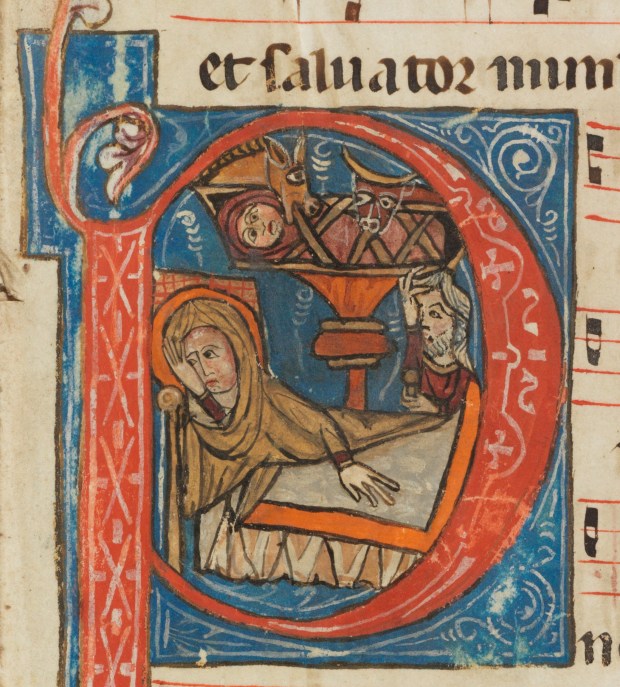 et saluator mun
P